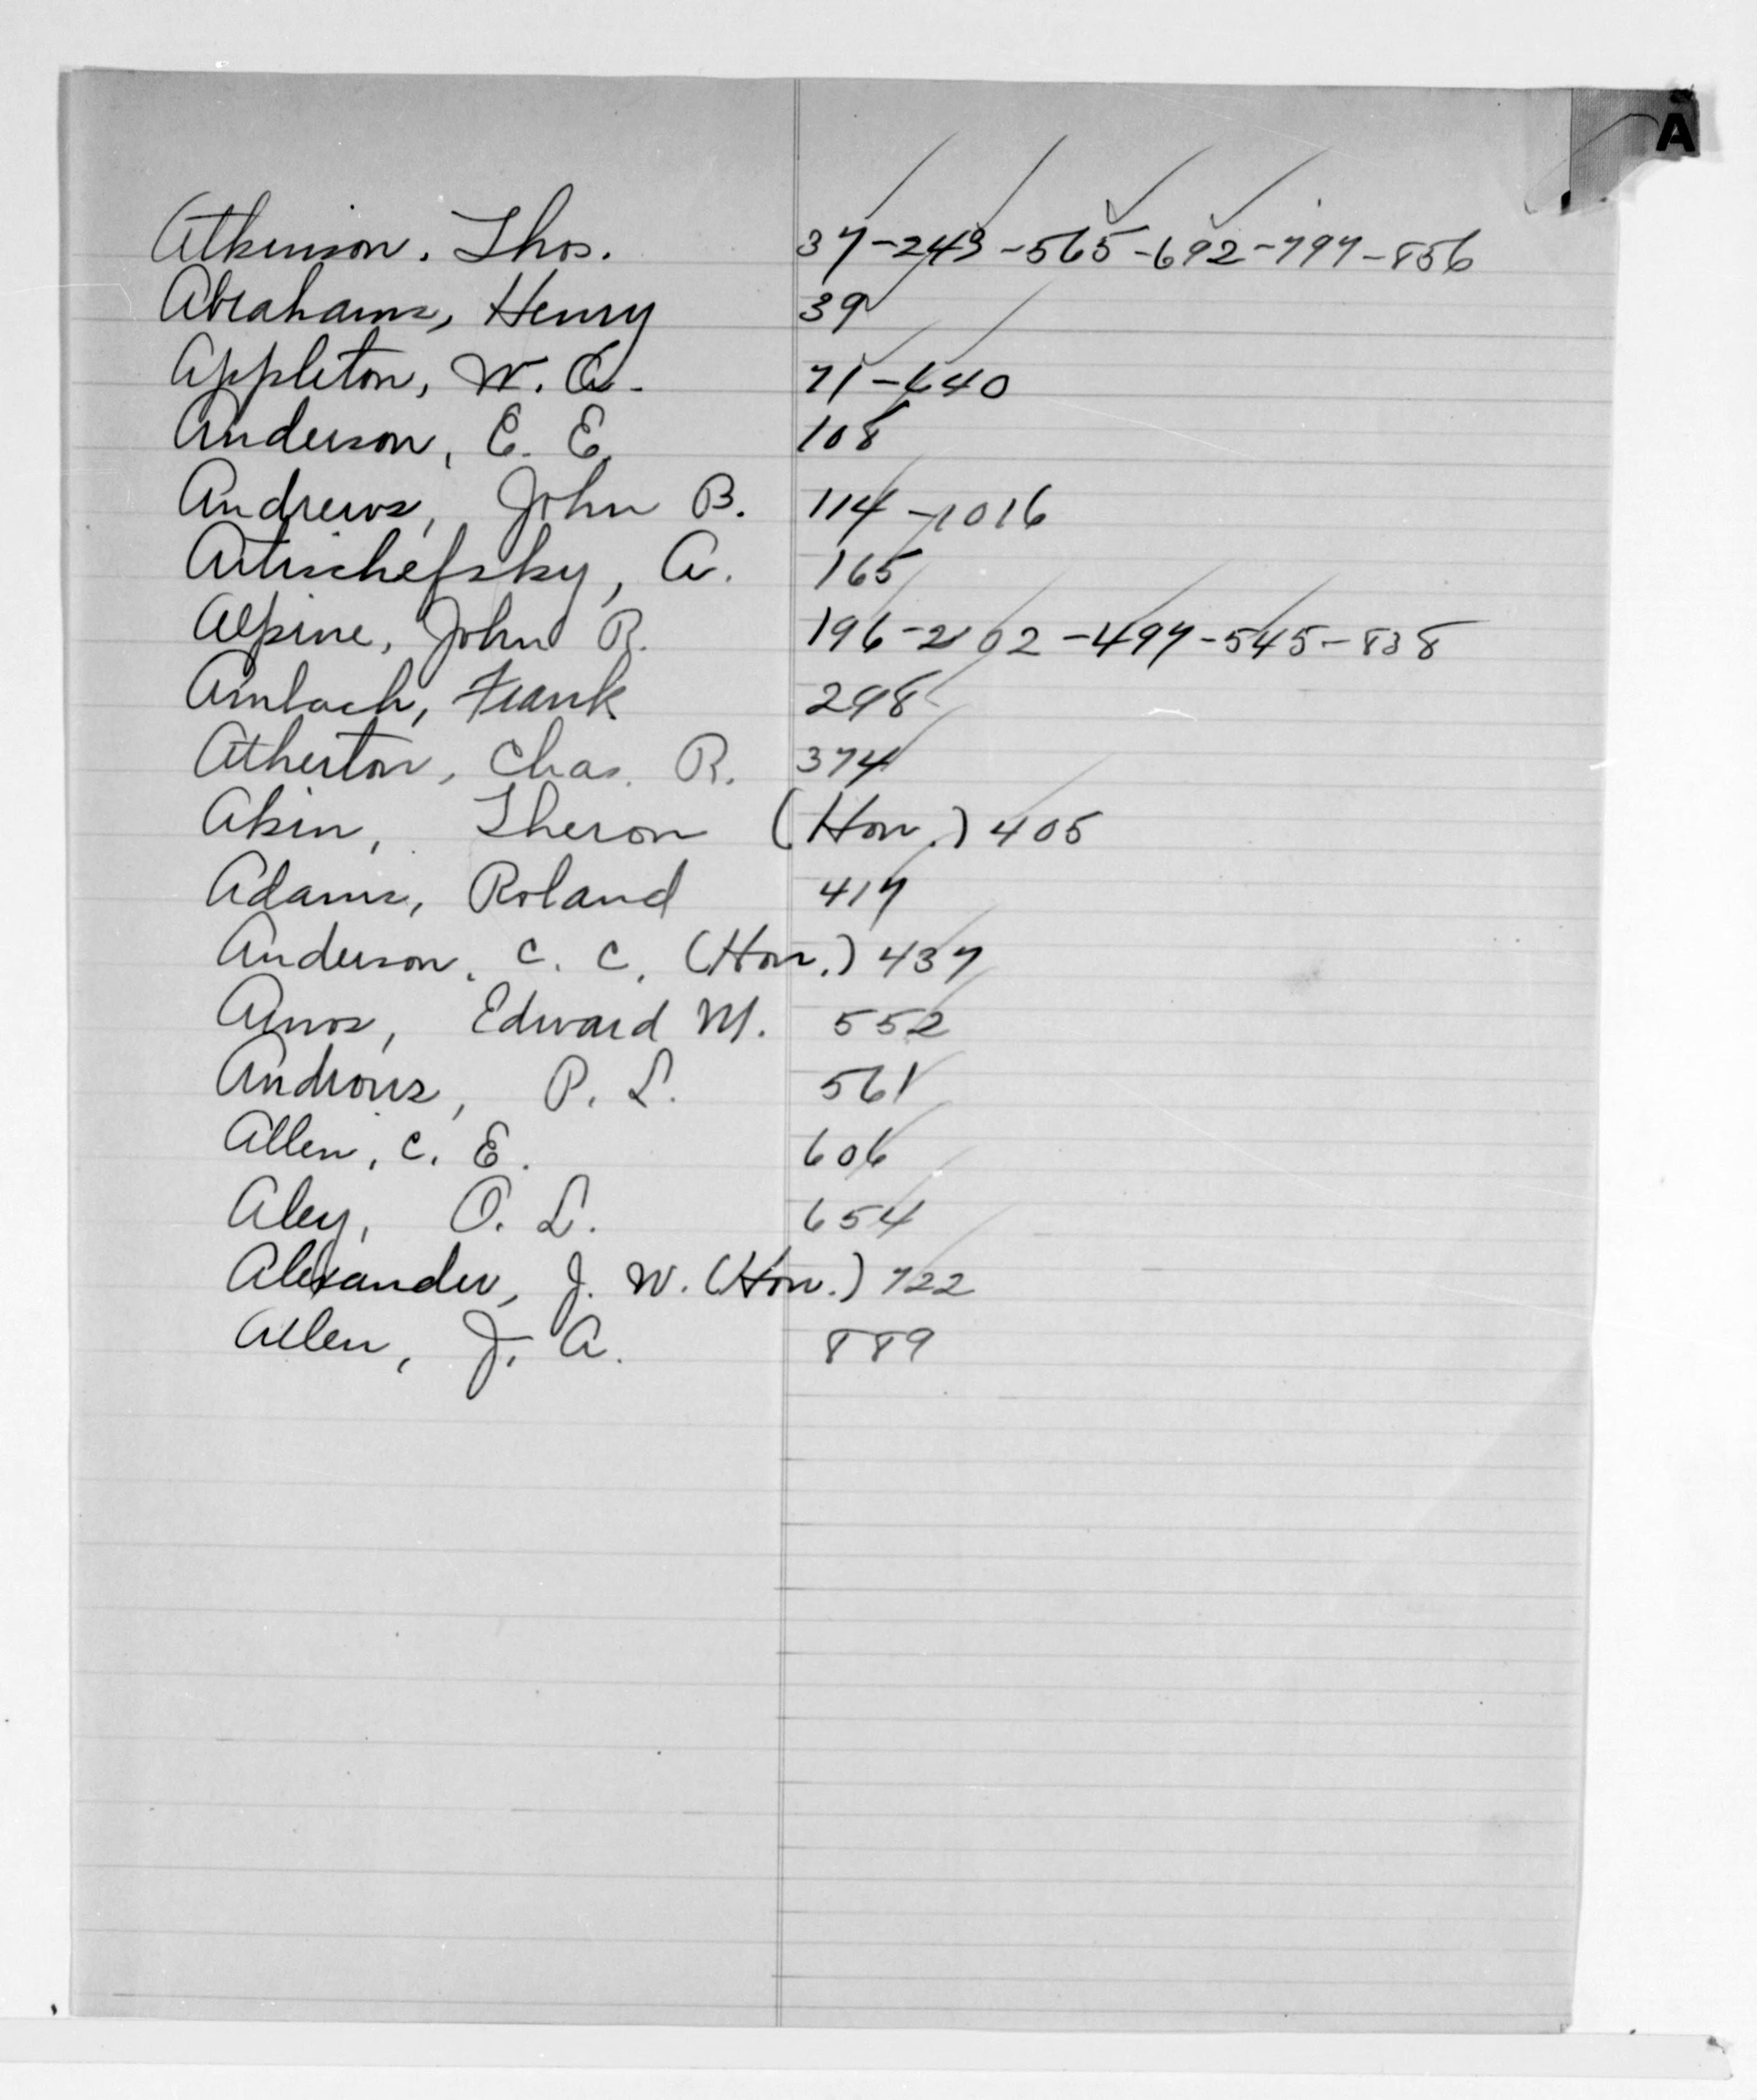 A
Atkinson. Thos. 37-243-565-692-797-856
Abrahams, Henry 39
Appleton, W. A. 71-440
Anderson, E. E. 108
Andrews, John B. 114-1016
Artischefsky, A. 165
Alpine, John R. 196-202-497-545-838
Ambach, Frank 298
Atherton, Chas. R. 374
Akin, Theron (Hon.) 405
Adams, Roland 417
Anderson, C. C. (Hon.) 437
Amos, Edward M. 552
Androus, P. L. 561
Allen, C. E. 606
Aley, O. L. 654
Alexander, J. W. (Hon.) 722
Allen, J. A. 889